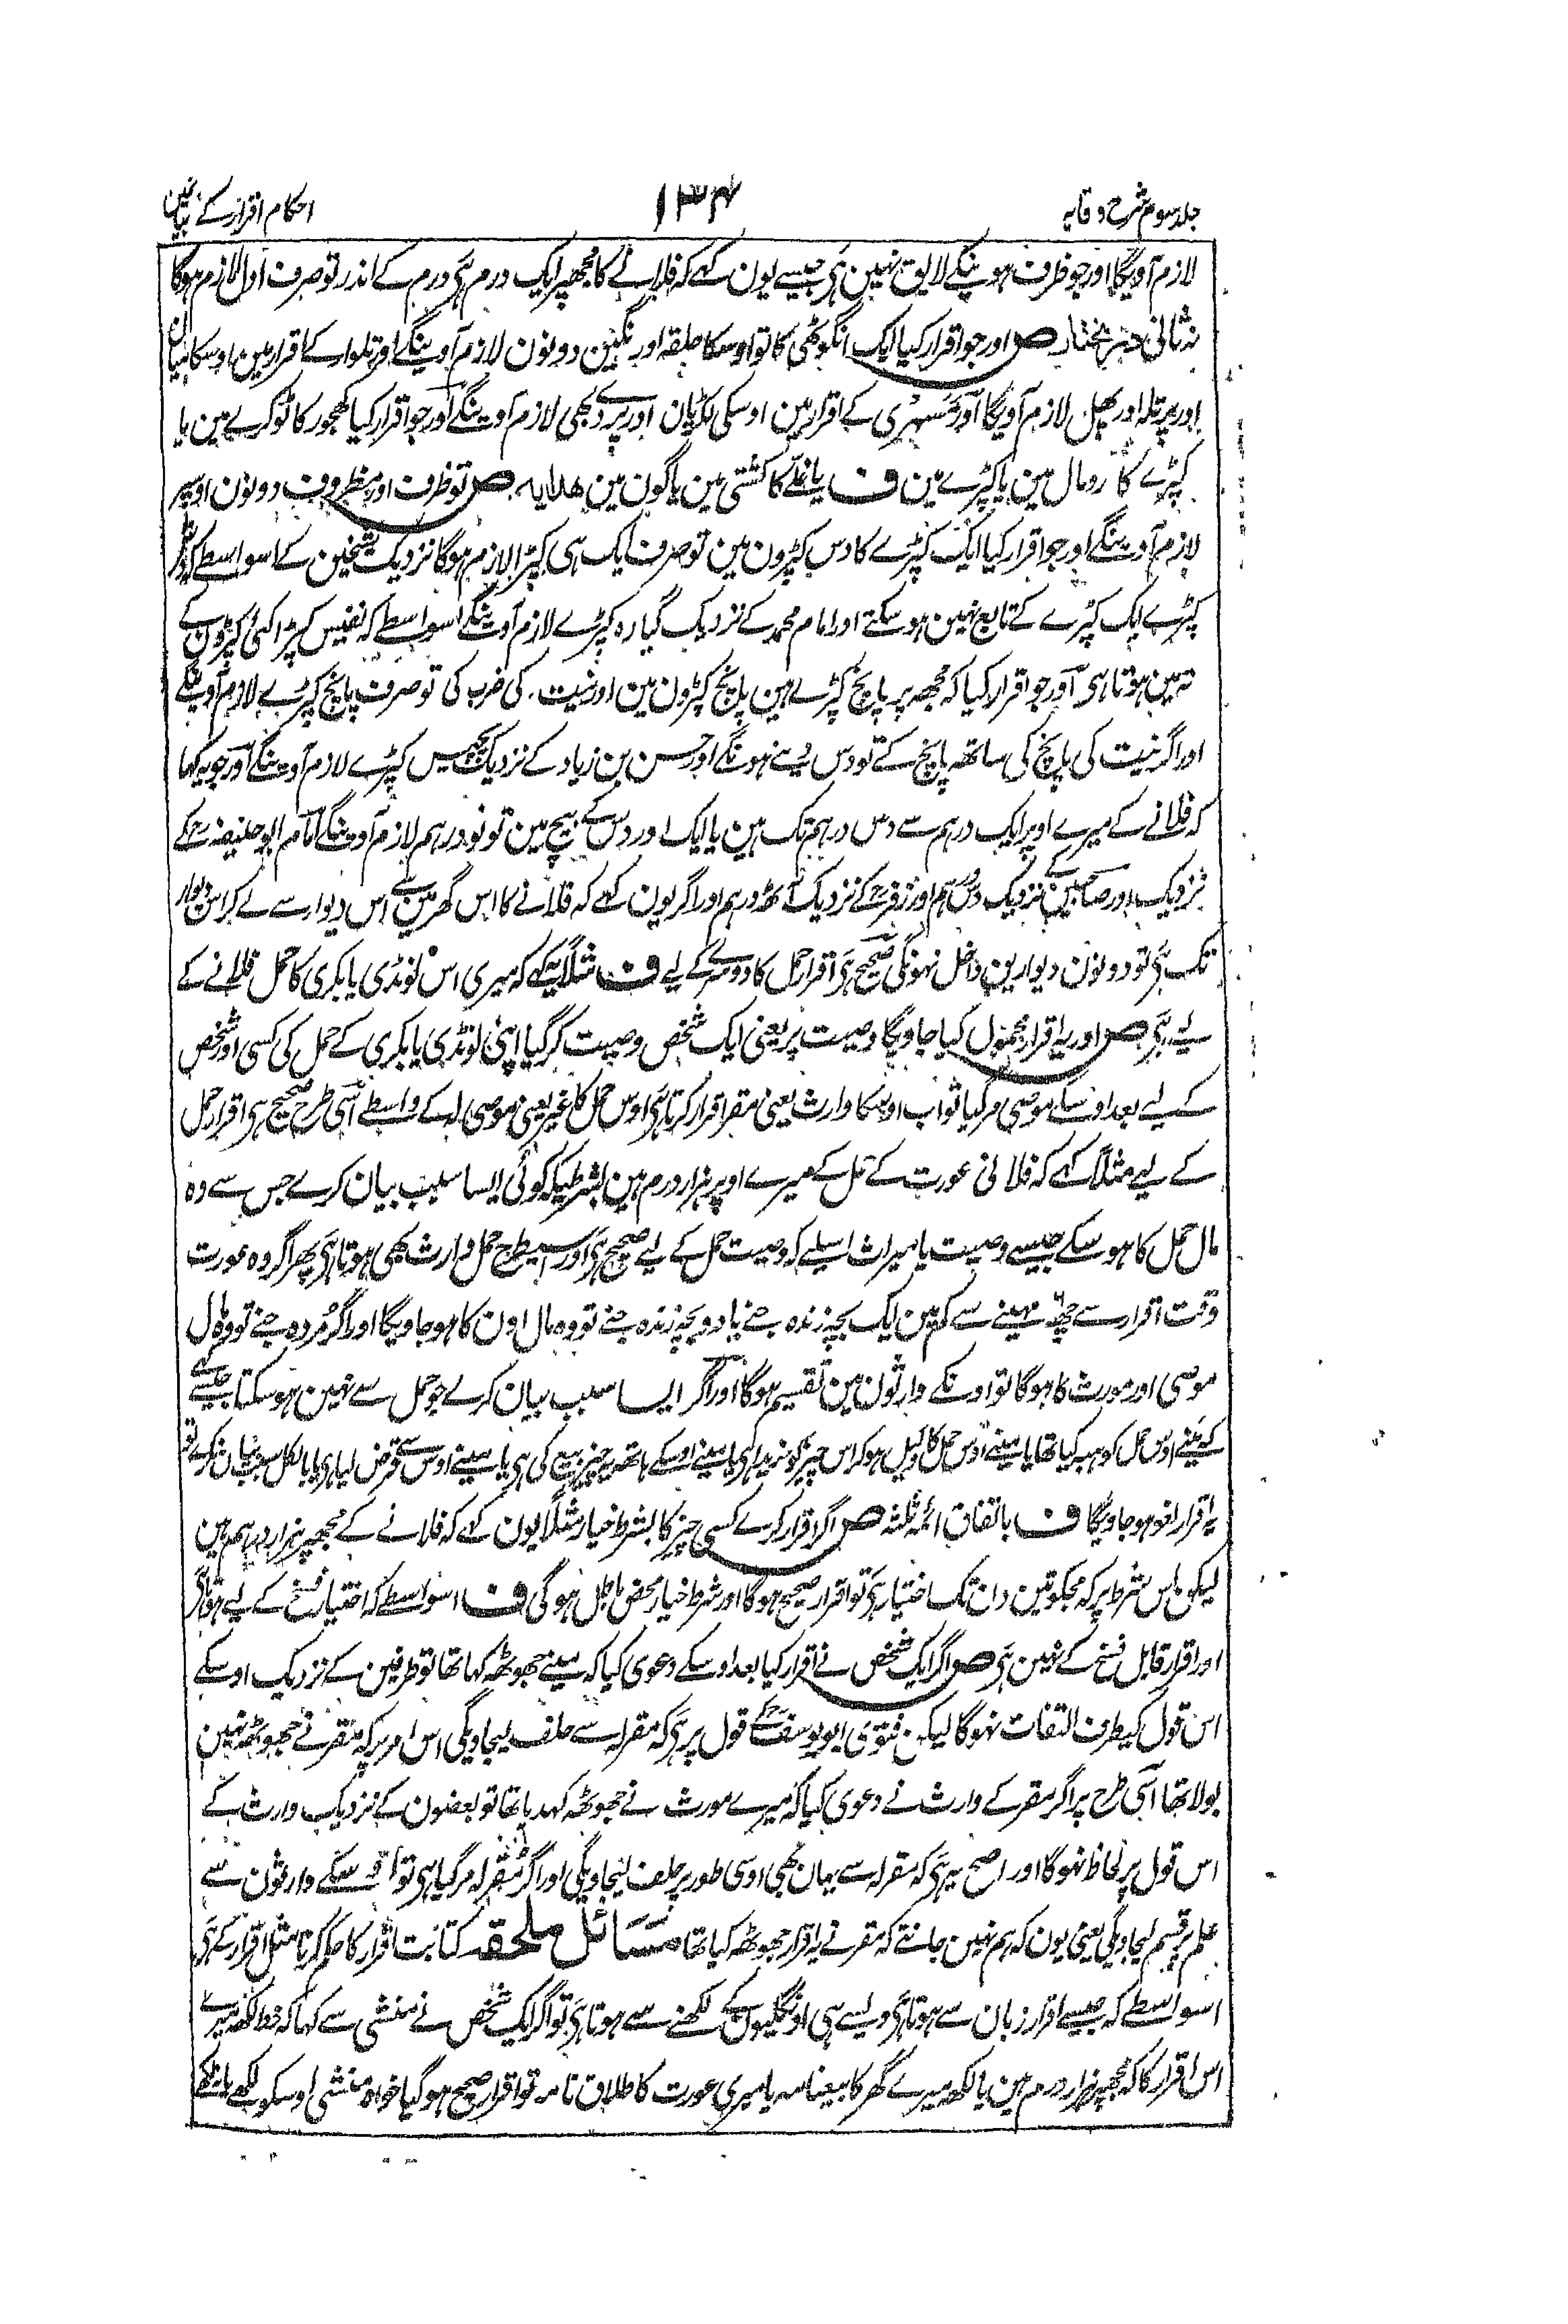 جلد سوم شرح وقایہ
۱۳۴
احکام اقرار کے بیان مین
لازم آویگا اور جو ظرف ہونیکے لایق نہین ہی جیسے یون کہے کہ فلانے کا مجھپر ایک درم ہی درم کے اندر تو صرف اول لازم ہوگا
نہ ثانی درمختار ص اور جو اقرار کیا ایک انگوٹھی کا تو اوسکا حلقہ اور نگین دونون لازم آوینگے اور تلوار کے اقرار مین اوسکا میان
اور پرتلہ اور پھل لازم آویگا اور مسہری کے اقرار مین اوسکی لکڑیان اور پردے بھی لازم آوینگے اور جو اقرار کیا کھجور کا ٹوکرے مین یا
کپڑے کا رومال مین یا کپڑے مین ف یا غلّے کا کشتی مین یا گون مین ھدایہ ص تو ظرف اور مظروف دونون اوسپر
لازم آوینگے اور جو اقرار کیا ایک کپڑے کا دس کپڑون مین تو صرف ایک ہی کپڑا لازم ہوگا نزدیک شیخین کے اسواسطے کہ دس
کپڑے ایک کپڑے کے تابع نہین ہو سکتے اور امام محمد کے نزدیک گیارہ کپڑے لازم آوینگے اسواسطے کہ نفیس کپڑا کئی کپڑون کے
تہ مین ہوتا ہی اور جو اقرار کیا کہ مجھ پر پانچ کپڑے ہین پانچ کپڑون مین اور نیت کی ضرب کی تو صرف پانچ کپڑے لازم آوینگے
اور اگر نیت کی پانچ کی ساتھ پانچ کے تو دس دینے ہونگے اور حسن بن زیاد کے نزدیک پچیس کپڑے لازم آوینگے اور جو یہ کہا
کہ فلانے کے میرے اوپر ایک درہم سے دس درہم تک ہین یا ایک اور دس کے بیچ مین تو نو درہم لازم آوینگے امام ابو حنیفہ رح کے
نزدیک اور صاحبین کے نزدیک دس درہم اور زفر رح کے نزدیک آٹھ درہم اور اگر یون کہے کہ فلانے کا اس گھر مین سے اس دیوار سے لے کر اس دیوار
تک ہی تو دونون دیوارین داخل نہونگی صحیح ہی اقرار حمل کا دوسرے کے لیے ف مثلاً یہ کہے کہ میری اس لونڈی یا بکری کا حمل فلانے کے
لیے ہی ص اور یہ اقرار محمول کیا جاویگا وصیت پر یعنی ایک شخص وصیت کر گیا اپنی لونڈی یا بکری کے حمل کی کسی اور شخص
کے لیے بعد اوسکے موصی مر گیا تو اب اوسکا وارث یعنی مقر اقرار کرتا ہی اوس حمل کا غیر یعنی موصی لہ کے واسطے اسی طرح صحیح ہی اقرار حمل
کے لیے مثلاً کہے کہ فلانی عورت کے حمل کے میرے اوپر ہزار درم ہین بشرطیکہ کوئی ایسا سبب بیان کرے جس سے وہ
مال حمل کا ہو سکے جیسے وصیت یا میراث اسلیے کہ وصیت حمل کے لیے صحیح ہی اور اسیطرح حمل وارث بھی ہوتا ہی پھر اگر وہ عورت
وقت اقرار سے چھ مہینے سے کم مین ایک بچہ زندہ جنے یا دو بچے زندہ جنے تو وہ مال اون کا ہو جاویگا اور اگر مُردہ جنے تو وہ مال
موصی اور مورث کا ہوگا تو اونکے وارثون مین تقسیم ہوگا اور اگر ایسا سبب بیان کرے جو حمل سے نہین ہو سکتا جیسے
کہ مینے اوس حمل کو ہبہ کیا تھا یا مینے اوس حمل کا وکیل ہو کر اس چیز کو خریدا ہی یا مینے اوسکے ہاتھ یہ چیز بیع کی ہی یا مینے اوس سے قرض لیا ہی یا بالکل سبب بیان نکرے تو
یہ اقرار لغو ہو جاویگا ف باتفاق ائمہ ثلثہ ص اگر اقرار کرے کسی چیز کا بشرط خیار مثلاً یون کہے کہ فلانے کے مجھپر ہزار درہم ہین
لیکن اس شرط پر کہ مجکو تین دن تک اختیار ہی تو اقرار صحیح ہوگا اور شرط خیار محض باطل ہوگی ف اسواسطے کہ اختیار فسخ کے لیے ہوتا ہی
اور اقرار قابل فسخ کے نہین ہی ص اگر ایک شخص نے اقرار کیا بعد اوسکے دعوی کیا کہ مینے جھوٹھ کہا تھا تو طرفین کے نزدیک اوسکے
اس قول کیطرف التفات نہوگا لیکن فتوی ابو یوسف رح کے قول پر ہی کہ مقرلہ سے حلف لیجاویگی اس امر پر کہ مقر نے جھوٹھ نہین
بولا تھا اسی طرح پر اگر مقر کے وارث نے دعوی کیا کہ میرے مورث نے جھوٹھ کہدیا تھا تو بعضون کے نزدیک وارث کے
اس قول پر لحاظ نہوگا اور اصح یہ ہی کہ مقرلہ سے یہان بھی اوسی طور پر حلف لیجاویگی اور اگر مقرلہ مر گیا ہی تو اوسکے وارثون سے
علم پر قسم لیجاویگی یعنی یون کہ ہم نہین جانتے کہ مقر نے یہ اقرار جھوٹھ کیا تھا مسائل ملحقہ کتابت اقرار کا حکم کرنا مثل اقرار کے ہی
اسواسطے کہ جیسے اقرار زبان سے ہوتا ہی ویسے ہی اونگلیون کے لکھنے سے ہوتا ہی تو اگر ایک شخص نے منشی سے کہا کہ خط لکھ میرے
اس اقرار کا کہ مجھپر ہزار درم ہین یا لکھ میرے گھر کا بیعنامہ یا میری عورت کا طلاق نامہ تو اقرار صحیح ہو گیا خواہ منشی اوسکو لکھے یا نہ لکھے